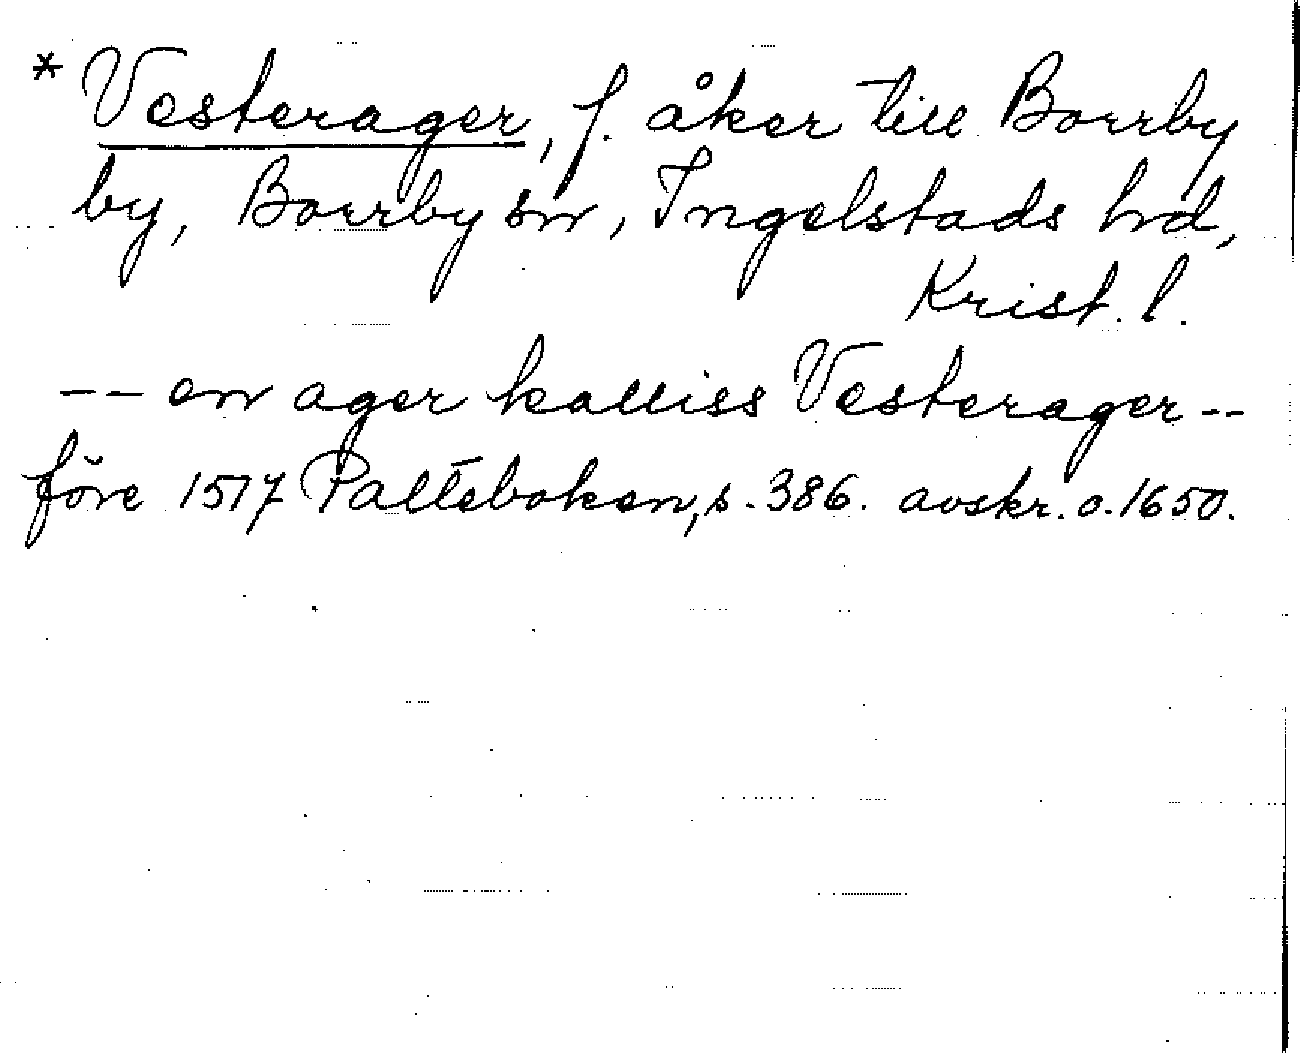 * Vesterager, f. åker till Borrby
by, Borrby sn, Ingelstads hd,
Krist. l.
-- en ager kalliss Vesterager --
före 1517 Palteboken, s. 386. avskr. o. 1650.